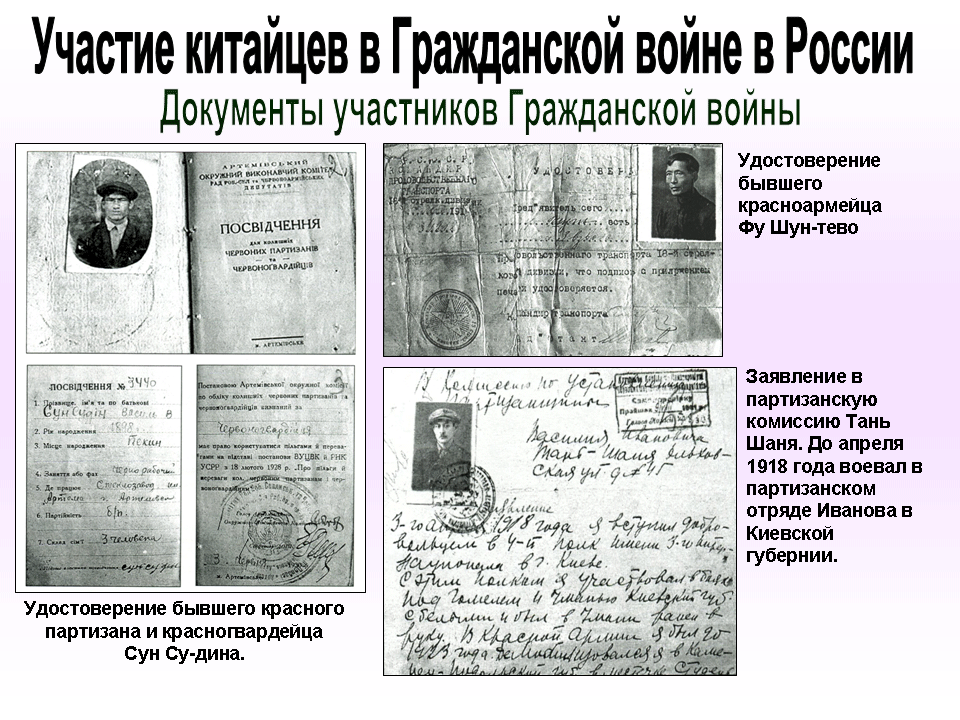 Участие китайцев в Гражданской войне в России
Документы участников Гражданской войны
АРТЕМІВСЬКИЙ
ОКРУЖНИЙ ВИКОНАВЧИЙ КОМІТЕТ
РАД РОБ.-СЕЛ. та ЧЕРВОНОАРМІЙСЬКИХ
ДЕПУТАТІВ
ПОСВІДЧЕННЯ
для колишніх
ЧЕРВОНИХ ПАРТИЗАНІВ
та
ЧЕРВОНОГВАРДІЙЦІВ
м. АРТЕМІВСЬК
ПОСВІДЧЕННЯ № 3440
1. Прізвище, ім'я та по батькові
2. Рік народження 1898
3. Місце народження Пекин
4. Заняття або фах чернорабочий
5. Де працює
6. Партійність б/п.
7. Склад сім'ї 3 человека
Постановою Артемівської окружної комісії
по обліку колишніх червоних партизанів та
червоногвардійців визнаний за
Червоногвардійця
має право користуватися пільгами й перева-
гами на підставі постанови ВУЦВК в РНК
УСРР з 18 лютого 1928 р. „Про пільги й
переваги кол. червоним партизанам і чер-
воногвардійцям".
Удостоверение бывшего красного
партизана и красногвардейца
Сун Су-дина.
Р.С.Ф.С.Р.
УДОСТОВЕРЕ
Пред'явитель сего
есть
ивизии, что подпись с приложением
печати удостоверяется.
Командир транспорта
Адъютант
Удостоверение
бывшего
красноармейца
Фу Шун-тево
В Комиссию по установлению
Партизанщины
Василия Ивановича
Тань-Шаня
3-го
1918 года я вступил добро-
вольцем в 4-й полк имени 3-го
в г. Киеве.
С этим полком я участвовал в боях
под Гомелем и Уманью Киевской губ
с белыми и был в Умани ранен в
руку. В Красной Армии я был до
1923 года. Демобилизовался я в Каме-
Подольской губ в местечке
Заявление в
партизанскую
комиссию Тань
Шаня. До апреля
1918 года воевал в
партизанском
отряде Иванова в
Киевской
губернии.